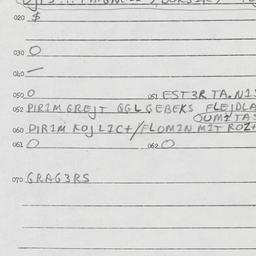 020 $
030 O
040 —
050 O 051 EST3R TA.N1S
052 PIR1M GREJT GGLGEBEKS FLEJDLA
OUM1TAS
060 PIR1M KOJL1C+/FLOM1N M1T ROZ+
061 O 062 O
070 GRAG3RS